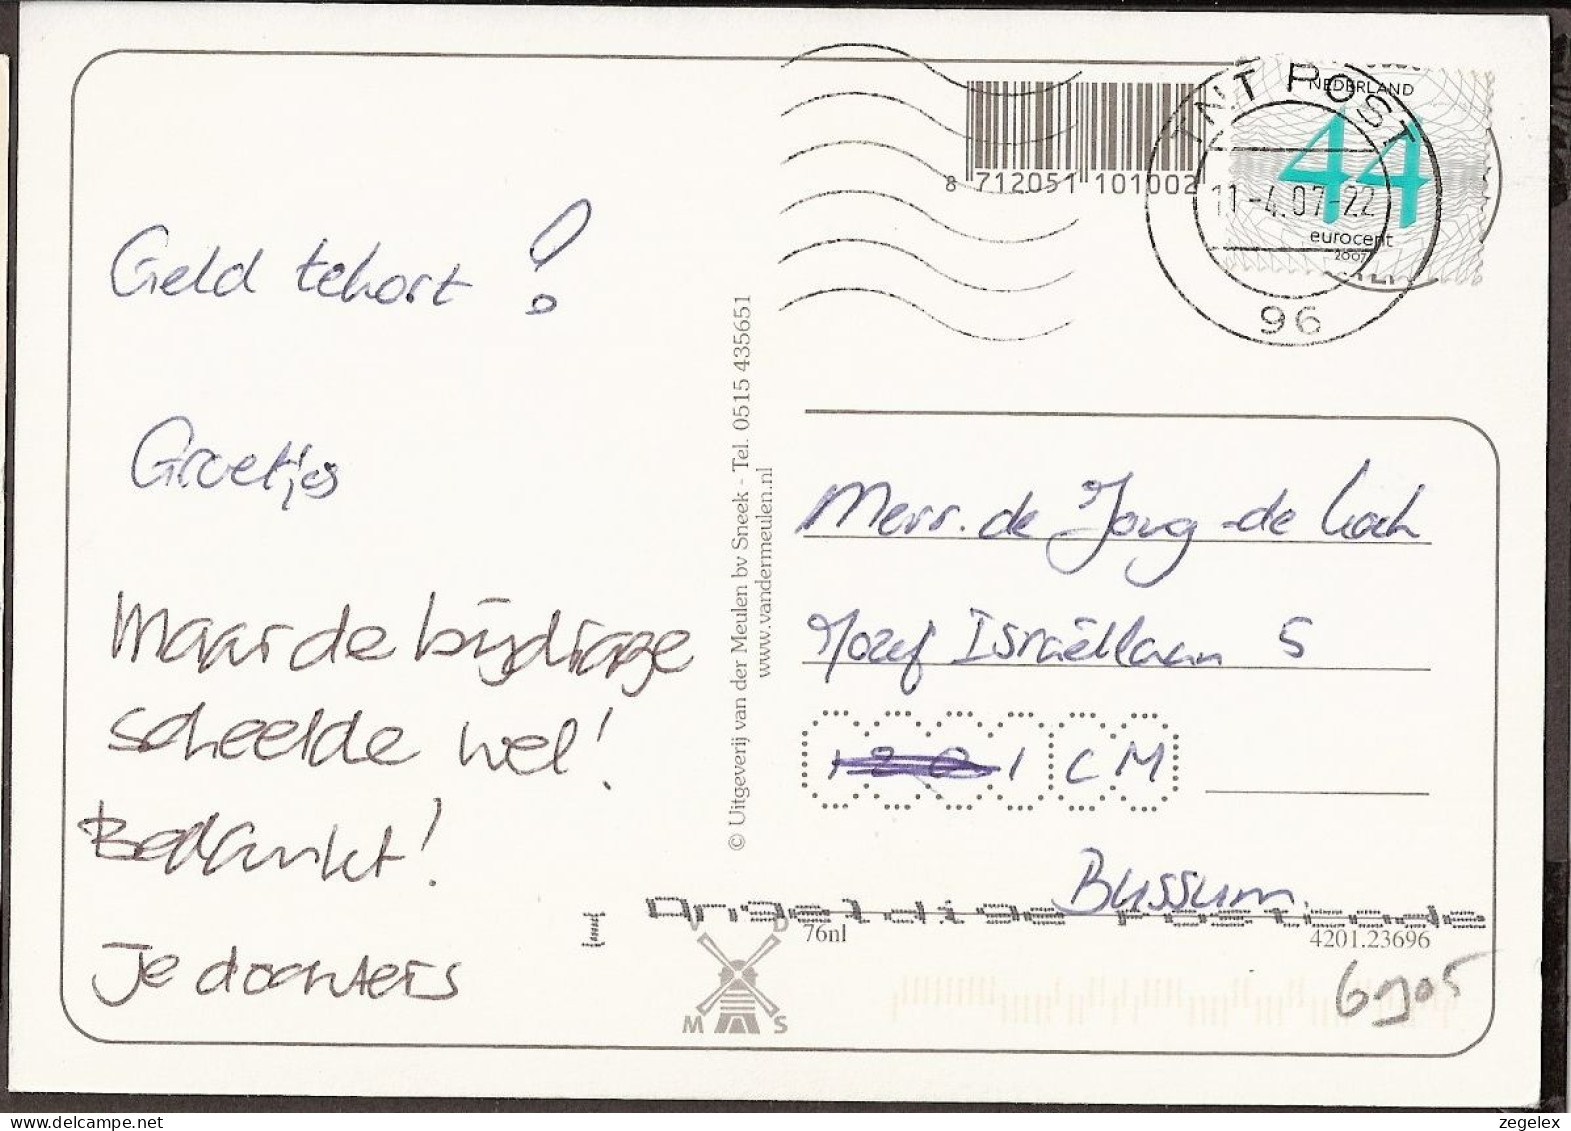 Geld tekort !
Groetjes
Maar de bijdrage
scheelde wel!
Bedankt!
Je dochters
© Uitgeverij van der Meulen bv Sneek - Tel. 0515 435651
www.vandermeulen.nl
8 712051 101002
TNT POST
11-4.07-22
96
NEDERLAND
44
eurocent
2007
Mevr. de Jong -de
Jozef Israëllaan 5
1201 CM
Bussum.
Ongeldige Postcode
76nl
4201.23696
V D
M S
zegelex